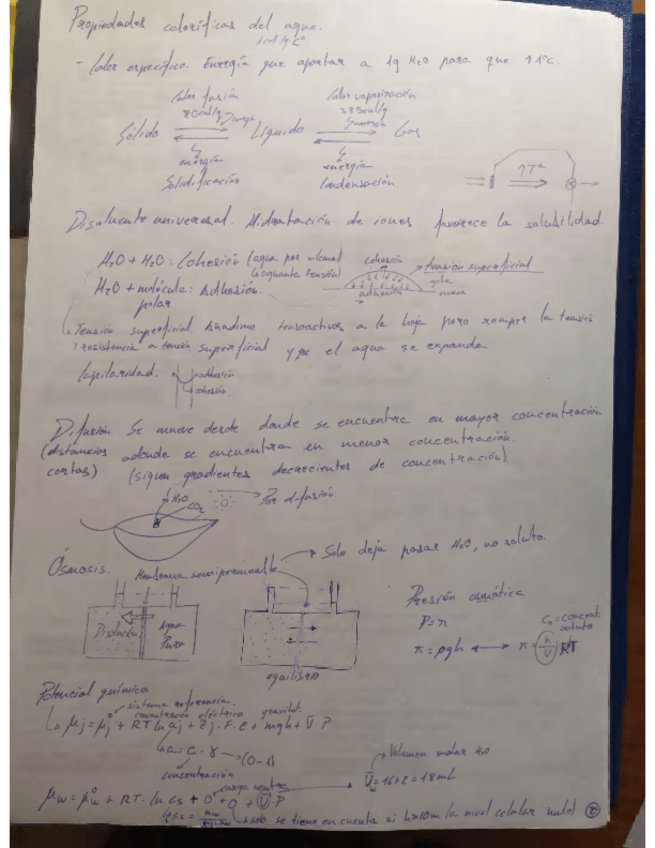 Propiedades caloríficas del agua.
1cal/g Cº
- Calor específico. Energía que aportar a 1g H2O para que ↑ 1ºc.
Calor fusión
80cal/g
Calor vaporización
Sólido Líquido Gas
energía
energía
Solidificación
Condensación
↑Tª
Disolvente universal. Hidratación de iones favorece la solubilidad
H2O + H2O: Cohesión (agua por
tensión)
H2O + molécula: Adhesión.
polar
cohesión
tensión superficial
adhesión
Tensión superficial. Añadimo tensoactivos a la hoja para romper la tensión
resistencia a tensión superficial y el agua se expanda
Capilaridad.
adhesión
cohesión.
Difusión. Se mueve desde donde se encuentra en mayor concentración
(distancias adonde se encuentra en menor concentración.
cortas) (siguen gradientes decrecientes de concentración)
H2O
CO2
Por difusión.
Ósmosis. Membrana semipermeable
Solo deja pasar H2O, no soluto.
Disolución
Agua
Pura
equilibrio
Presión osmótica
P=π
π = ρgh ⟷ π = (n/V) RT
soluto
Potencial químico
sistema referencia.
concentración eléctrico gravitat.
μj = μj° + RT ln aj + Zj · F · E + mgh + V̄ P
a = c · γ → (0-1)
concentración
Volumen molar H2O
V̄ = 16+2 = 18mL
carga neutra
μw = μw° + RT · ln cs + 0 + 0 + V̄ · P
solo se tiene en cuenta si h>10m (a nivel celular nulo) 2